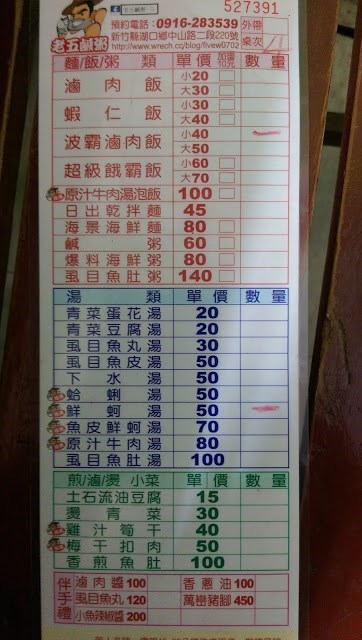 527391
老五鹹粥
預約電話：0916-283539
新竹縣湖口鄉中山路二段220號
http://www.wrech.cc/blog/livew0702
外帶
桌次
麵/飯/粥 類 單價 數量
滷肉飯 小20 大30
蝦仁飯 小30 大40
波霸滷肉飯 小40 大50
超級餓霸飯 小60 大70
原汁牛肉湯泡飯 100
日出乾拌麵 45
海景海鮮麵 80
鹹粥 60
爆料海鮮粥 80
虱目魚肚粥 140
湯類 單價 數量
青菜蛋花湯 20
青菜豆腐湯 20
虱目魚丸湯 30
虱目魚皮湯 50
下水湯 50
蛤蜊湯 50
鮮蚵湯 50
魚皮鮮蚵湯 70
原汁牛肉湯 80
虱目魚肚湯 100
煎/滷/燙 小菜 單價 數量
土石流油豆腐 15
燙青菜 30
雞汁筍干 40
梅干扣肉 50
香煎魚肚 100
伴手禮
滷肉醬 100 香蔥油 100
虱目魚丸 120 萬巒豬腳 450
小魚辣椒醬 200